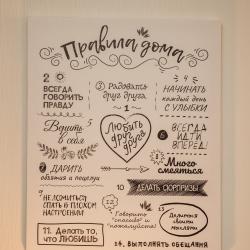 Правила дома
2
ВСЕГДА
ГОВОРИТЬ
ПРАВДУ
3 Радовать
друг друга
4
НАЧИНАТЬ
каждый день
С УЛЫБКИ
1
Любить
друг
друга
5
Верить
в себя
6
ВСЕГДА
ИДТИ
ВПЕРЁД!
7 ДАРИТЬ
объятия и поцелуи
Много
смеяться
9
НЕ ЛОЖИТЬСЯ
СПАТЬ В ПЛОХОМ
НАСТРОЕНИИ
10
ДЕЛАТЬ СЮРПРИЗЫ
11. Делать то,
что ЛЮБИШЬ
Говорить
"спасибо" и
"пожалуйста"!
13
Делиться
своими
мыслями
14. ВЫПОЛНЯТЬ ОБЕЩАНИЯ